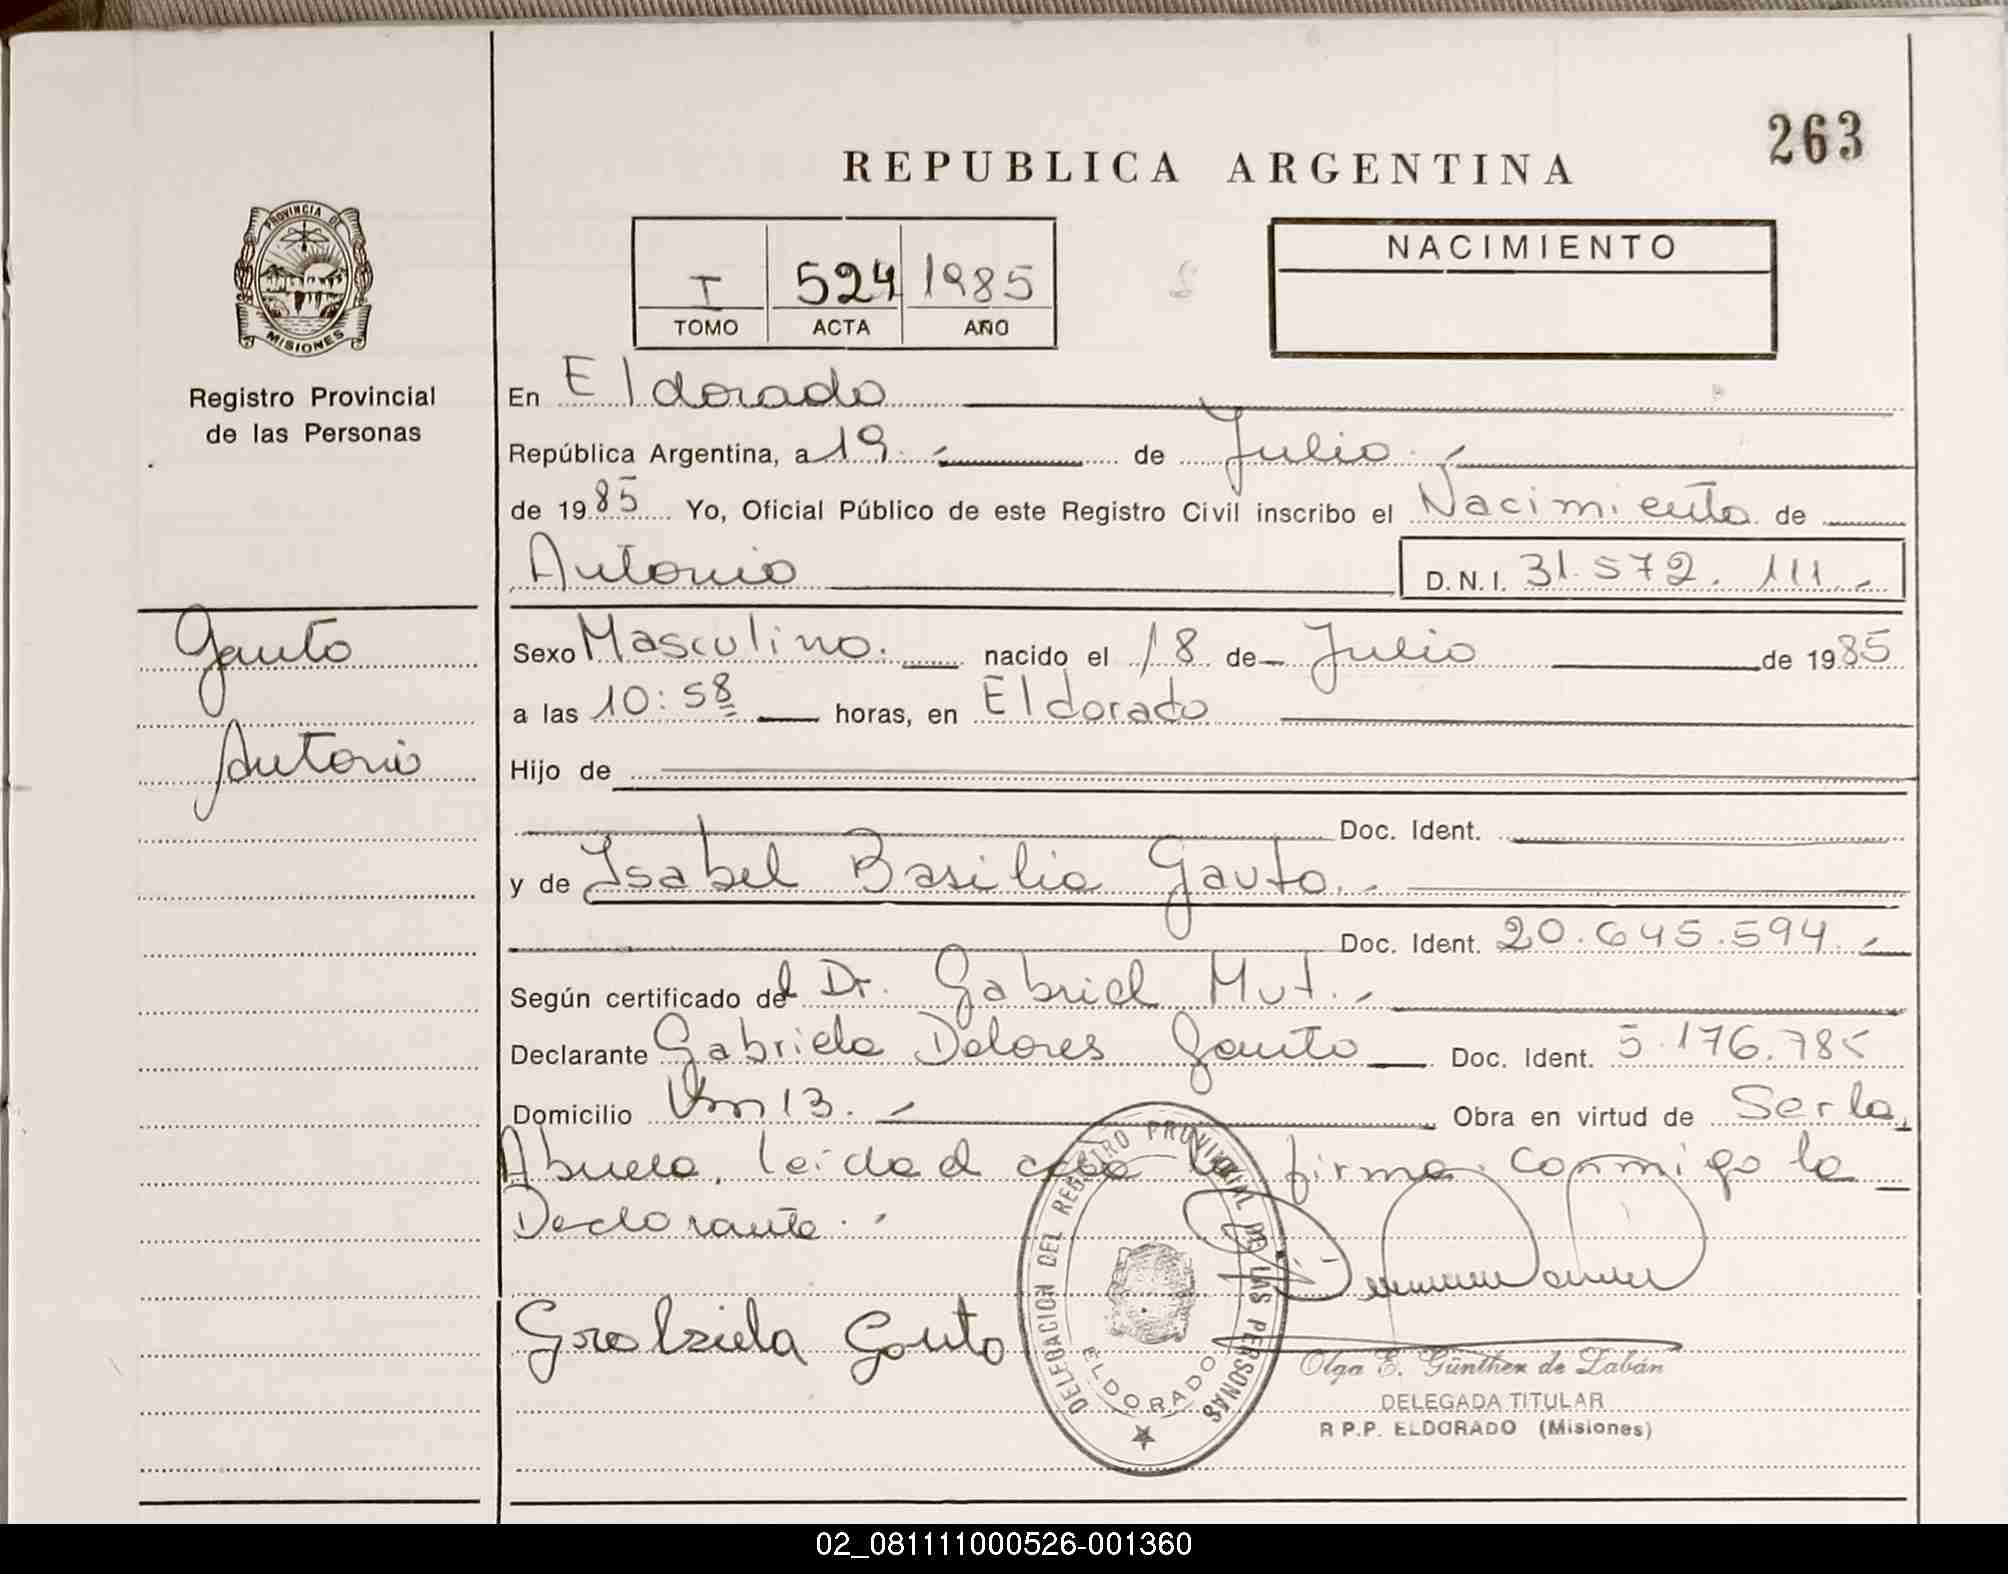 263
REPUBLICA ARGENTINA
PROVINCIA DE
MISIONES
I 524 1985
TOMO ACTA AÑO
NACIMIENTO
Registro Provincial
de las Personas
En Eldorado
República Argentina, a 19.- de Julio.-
de 1985 Yo, Oficial Público de este Registro Civil inscribo el Nacimiento de
Antonio D.N.I. 31.572.111.-
Gauto
Antonio
Sexo Masculino. nacido el 18 de Julio de 1985
a las 10:58 horas, en Eldorado
Hijo de
Doc. Ident.
y de Isabel Basilia Gauto.-
Doc. Ident. 20.645.594.-
Según certificado del Dr. Gabriel Mut.-
Declarante Gabriela Dolores Gauto Doc. Ident. 5.176.785
Domicilio Km 13.- Obra en virtud de Ser la
Abuela, leída el acta la firma conmigo la
Declarante.-
Grabziela Gauto
DELEGACION DEL REGISTRO PROVINCIAL DE LAS PERSONAS
ELDORADO
Olga E. Günther de Labán
DELEGADA TITULAR
R P.P. ELDORADO (Misiones)
02_081111000526-001360